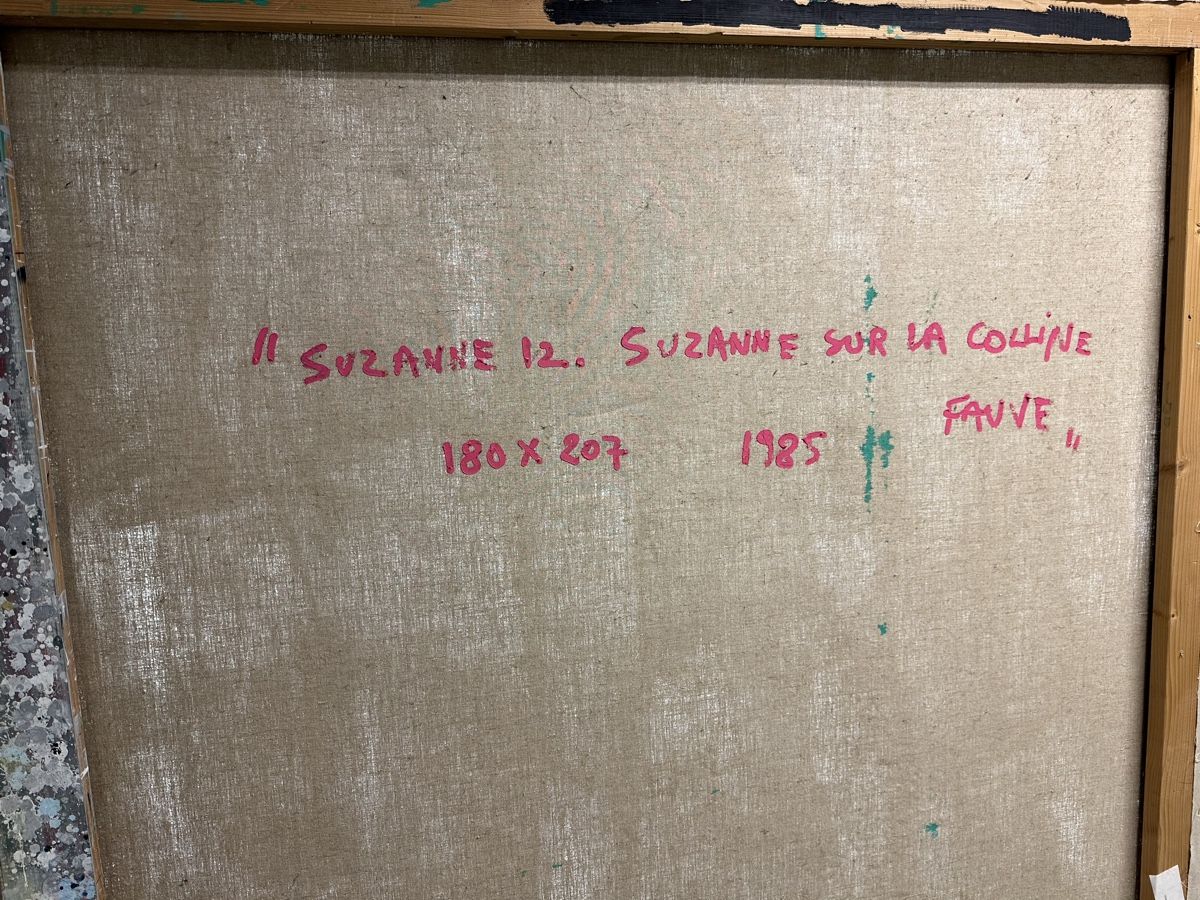 " SUZANNE 12. SUZANNE SUR LA COLLINE
FAUVE "
180 X 207 1985